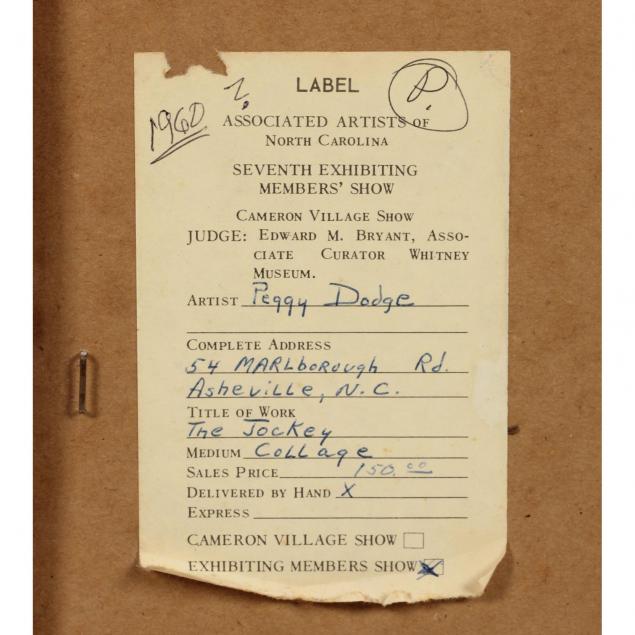 LABEL
1960
ASSOCIATED ARTISTS OF
NORTH CAROLINA
SEVENTH EXHIBITING
MEMBERS' SHOW
CAMERON VILLAGE SHOW
JUDGE: EDWARD M. BRYANT, ASSO-
CIATE CURATOR WHITNEY
MUSEUM.
ARTIST Peggy Dodge
COMPLETE ADDRESS
54 MARlborough Rd.
Asheville, N.C.
TITLE OF WORK
The Jockey
MEDIUM Collage
SALES PRICE 150.00
DELIVERED BY HAND X
EXPRESS
CAMERON VILLAGE SHOW
EXHIBITING MEMBERS SHOW